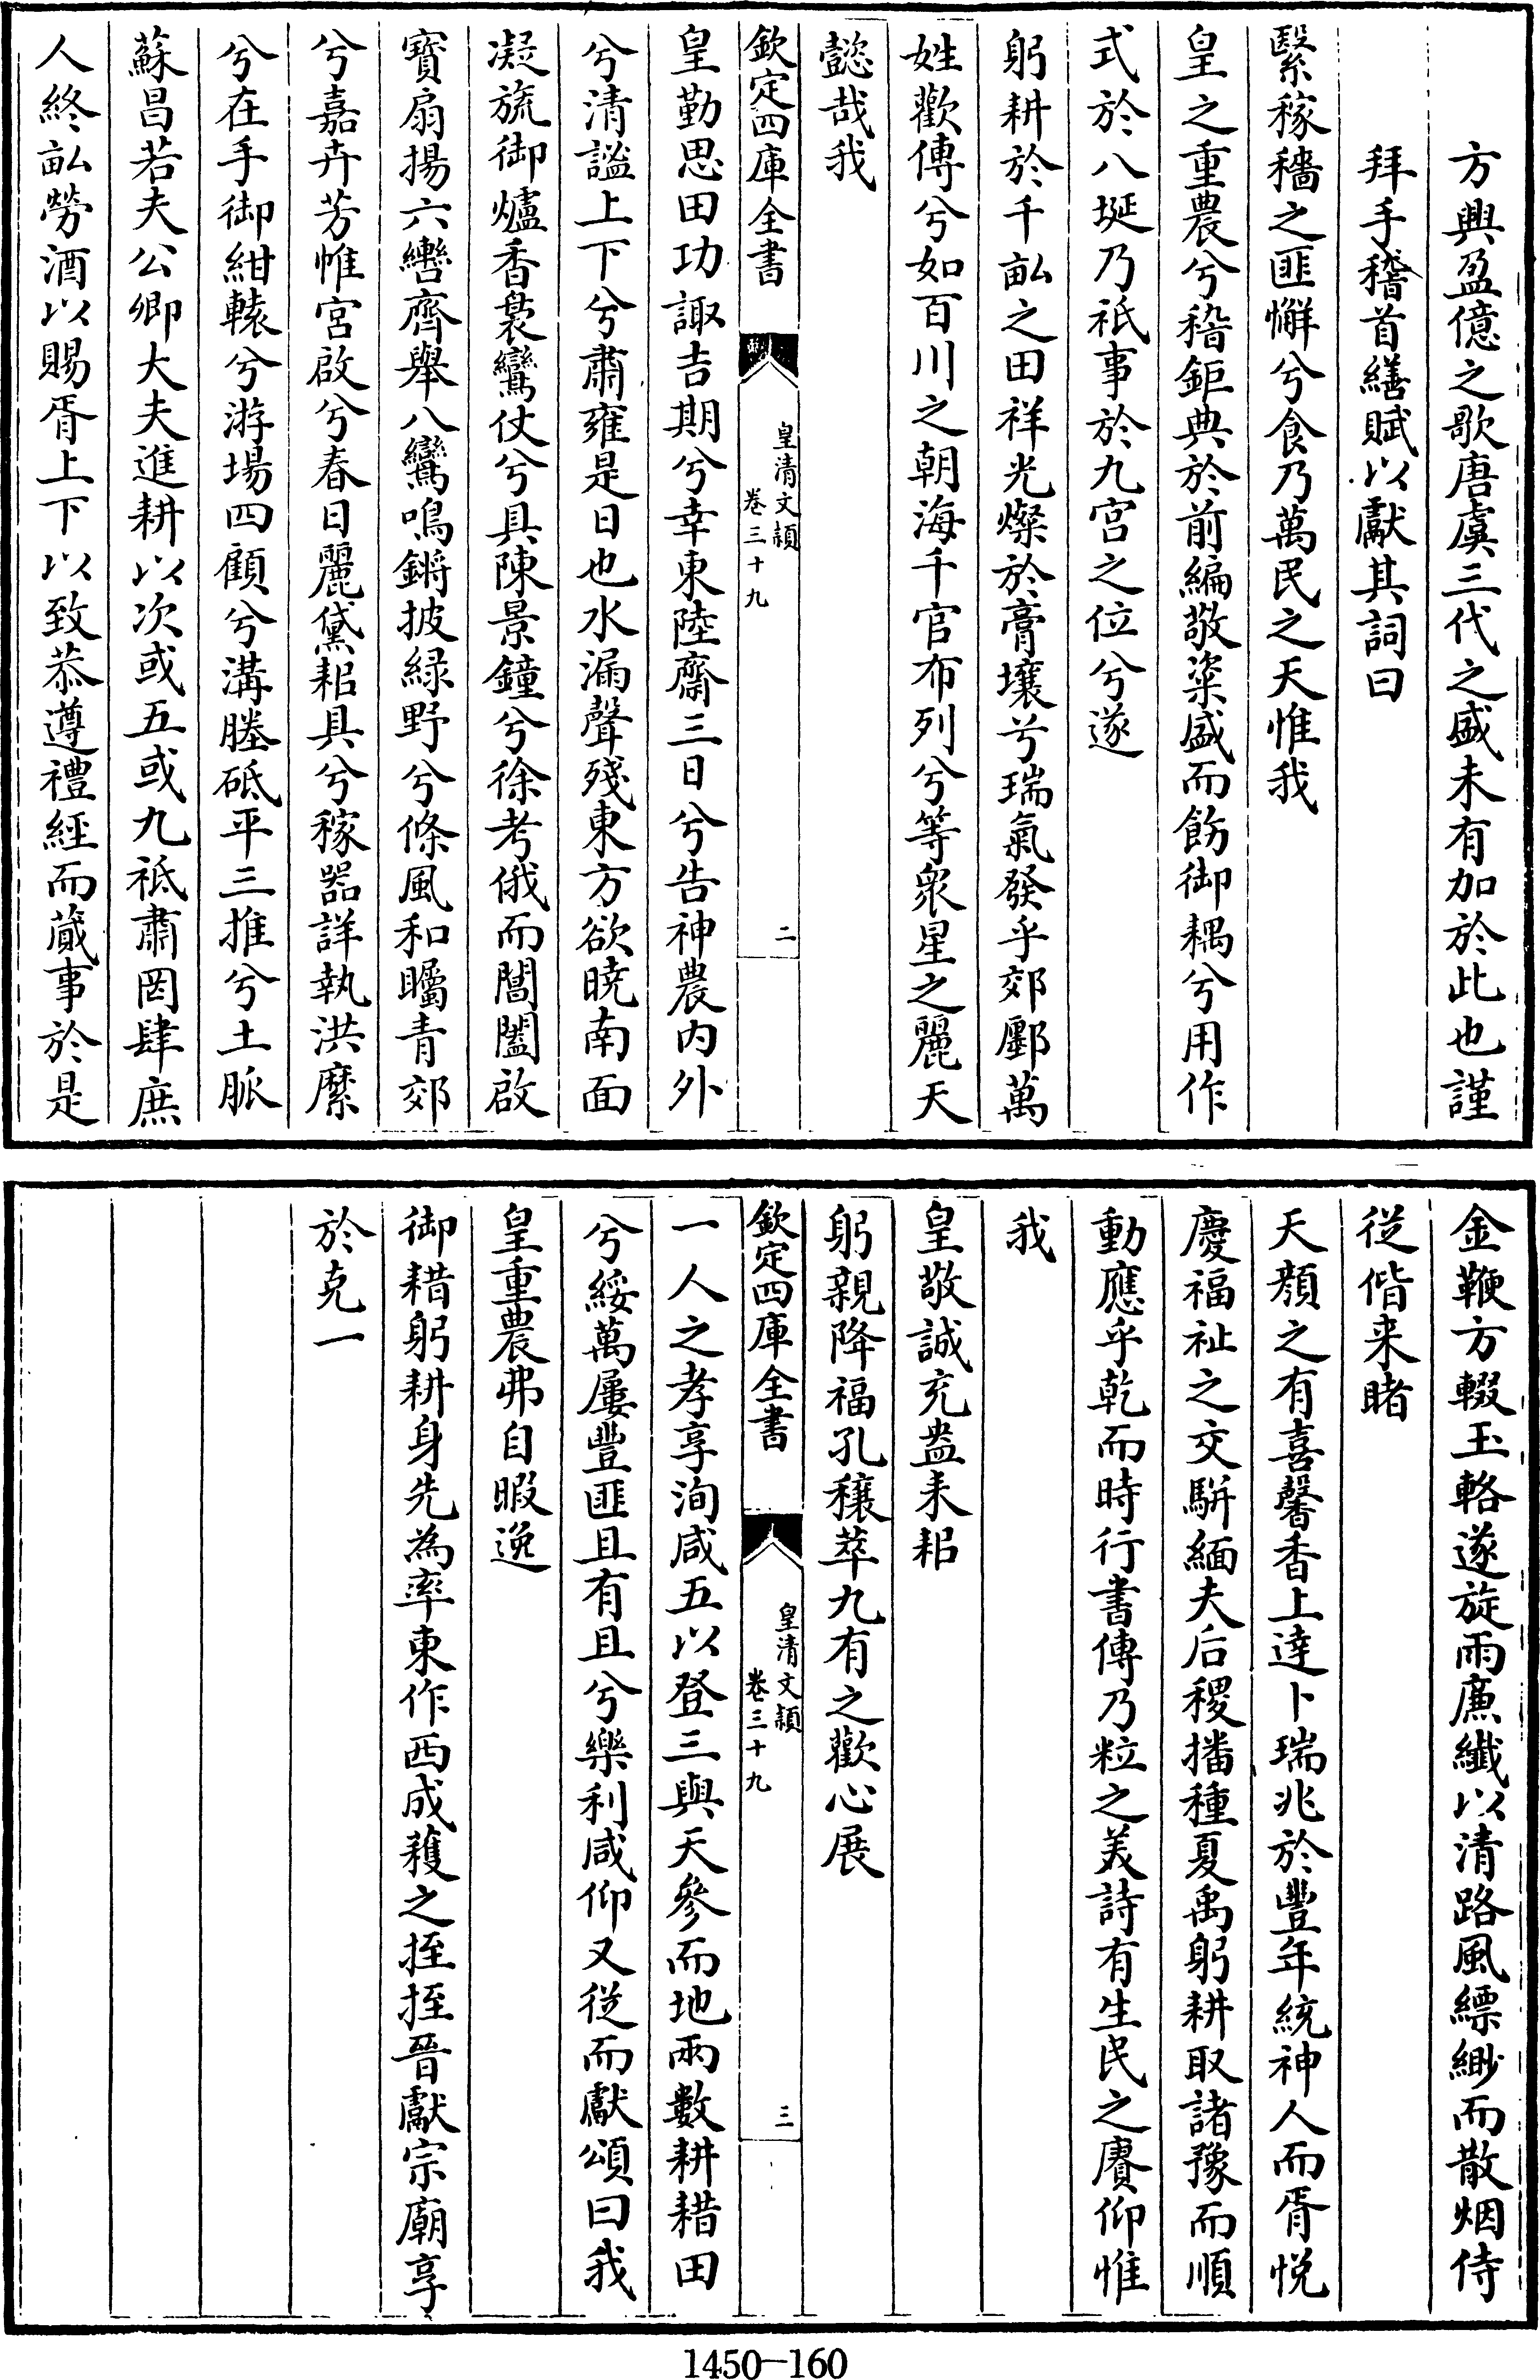 方興盈億之歌唐虞三代之盛未有加於此也謹
拜手稽首繕賦以獻其詞曰
繄稼穡之匪懈兮食乃萬民之天惟我
皇之重農兮稽鉅典於前編敬粢盛而飭御耦兮用作
式於八埏乃祇事於九宫之位兮遂
躬耕於千畝之田祥光燦於膏壤兮瑞氣發乎郊鄽萬
姓歡傳兮如百川之朝海千官布列兮等衆星之麗天
懿哉我
欽定四庫全書
皇清文穎
卷三十九
二
皇勤思田功諏吉期兮幸東陸齋三日兮告神農内外
兮清謐上下兮肅雍是日也水漏聲殘東方欲曉南面
凝旒御爐香裊鸞仗兮具陳景鐘兮徐考俄而閶闔啟
寶扇揚六轡齊舉八鸞鳴鏘披緑野兮條風和矚青郊
兮嘉卉芳帷宮啟兮春日麗黛耜具兮稼器詳執洪縻
兮在手御紺轅兮游場四顧兮溝塍砥平三推兮土脈
蘇昌若夫公卿大夫進耕以次或五或九祗肅罔肆庶
人終畝勞酒以賜胥上下以致恭遵禮經而蕆事於是
金鞭方輟玉輅遂旋雨廉纖以清路風縹緲而散烟侍
從偕来睹
天顔之有喜馨香上達卜瑞兆於豐年統神人而胥悦
慶福祉之交駢緬夫后稷播種夏禹躬耕取諸豫而順
動應乎乾而時行書傳乃粒之美詩有生民之賡仰惟
我
皇敬誠充盎耒耜
躬親降福孔穰萃九有之歡心展
欽定四庫全書
皇清文穎
卷三十九
三
一人之孝享洵咸五以登三與天參而地兩數耕耤田
兮綏萬屢豐匪且有且兮樂利咸仰又從而獻頌曰我
皇重農弗自暇逸
御耤躬耕身先為率東作西成穫之挃挃晉獻宗廟享
於克一
1450—160